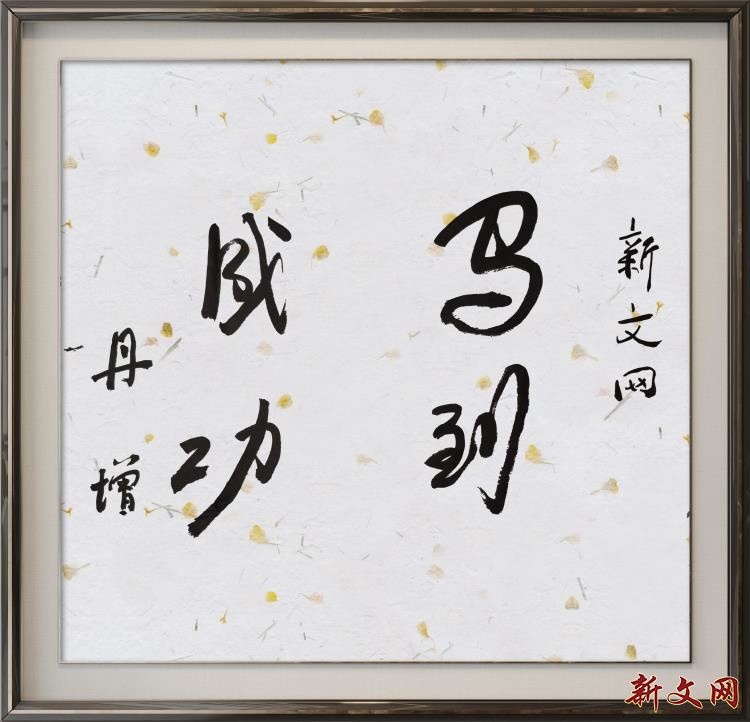 新文网
马到
成功
丹增
新文网